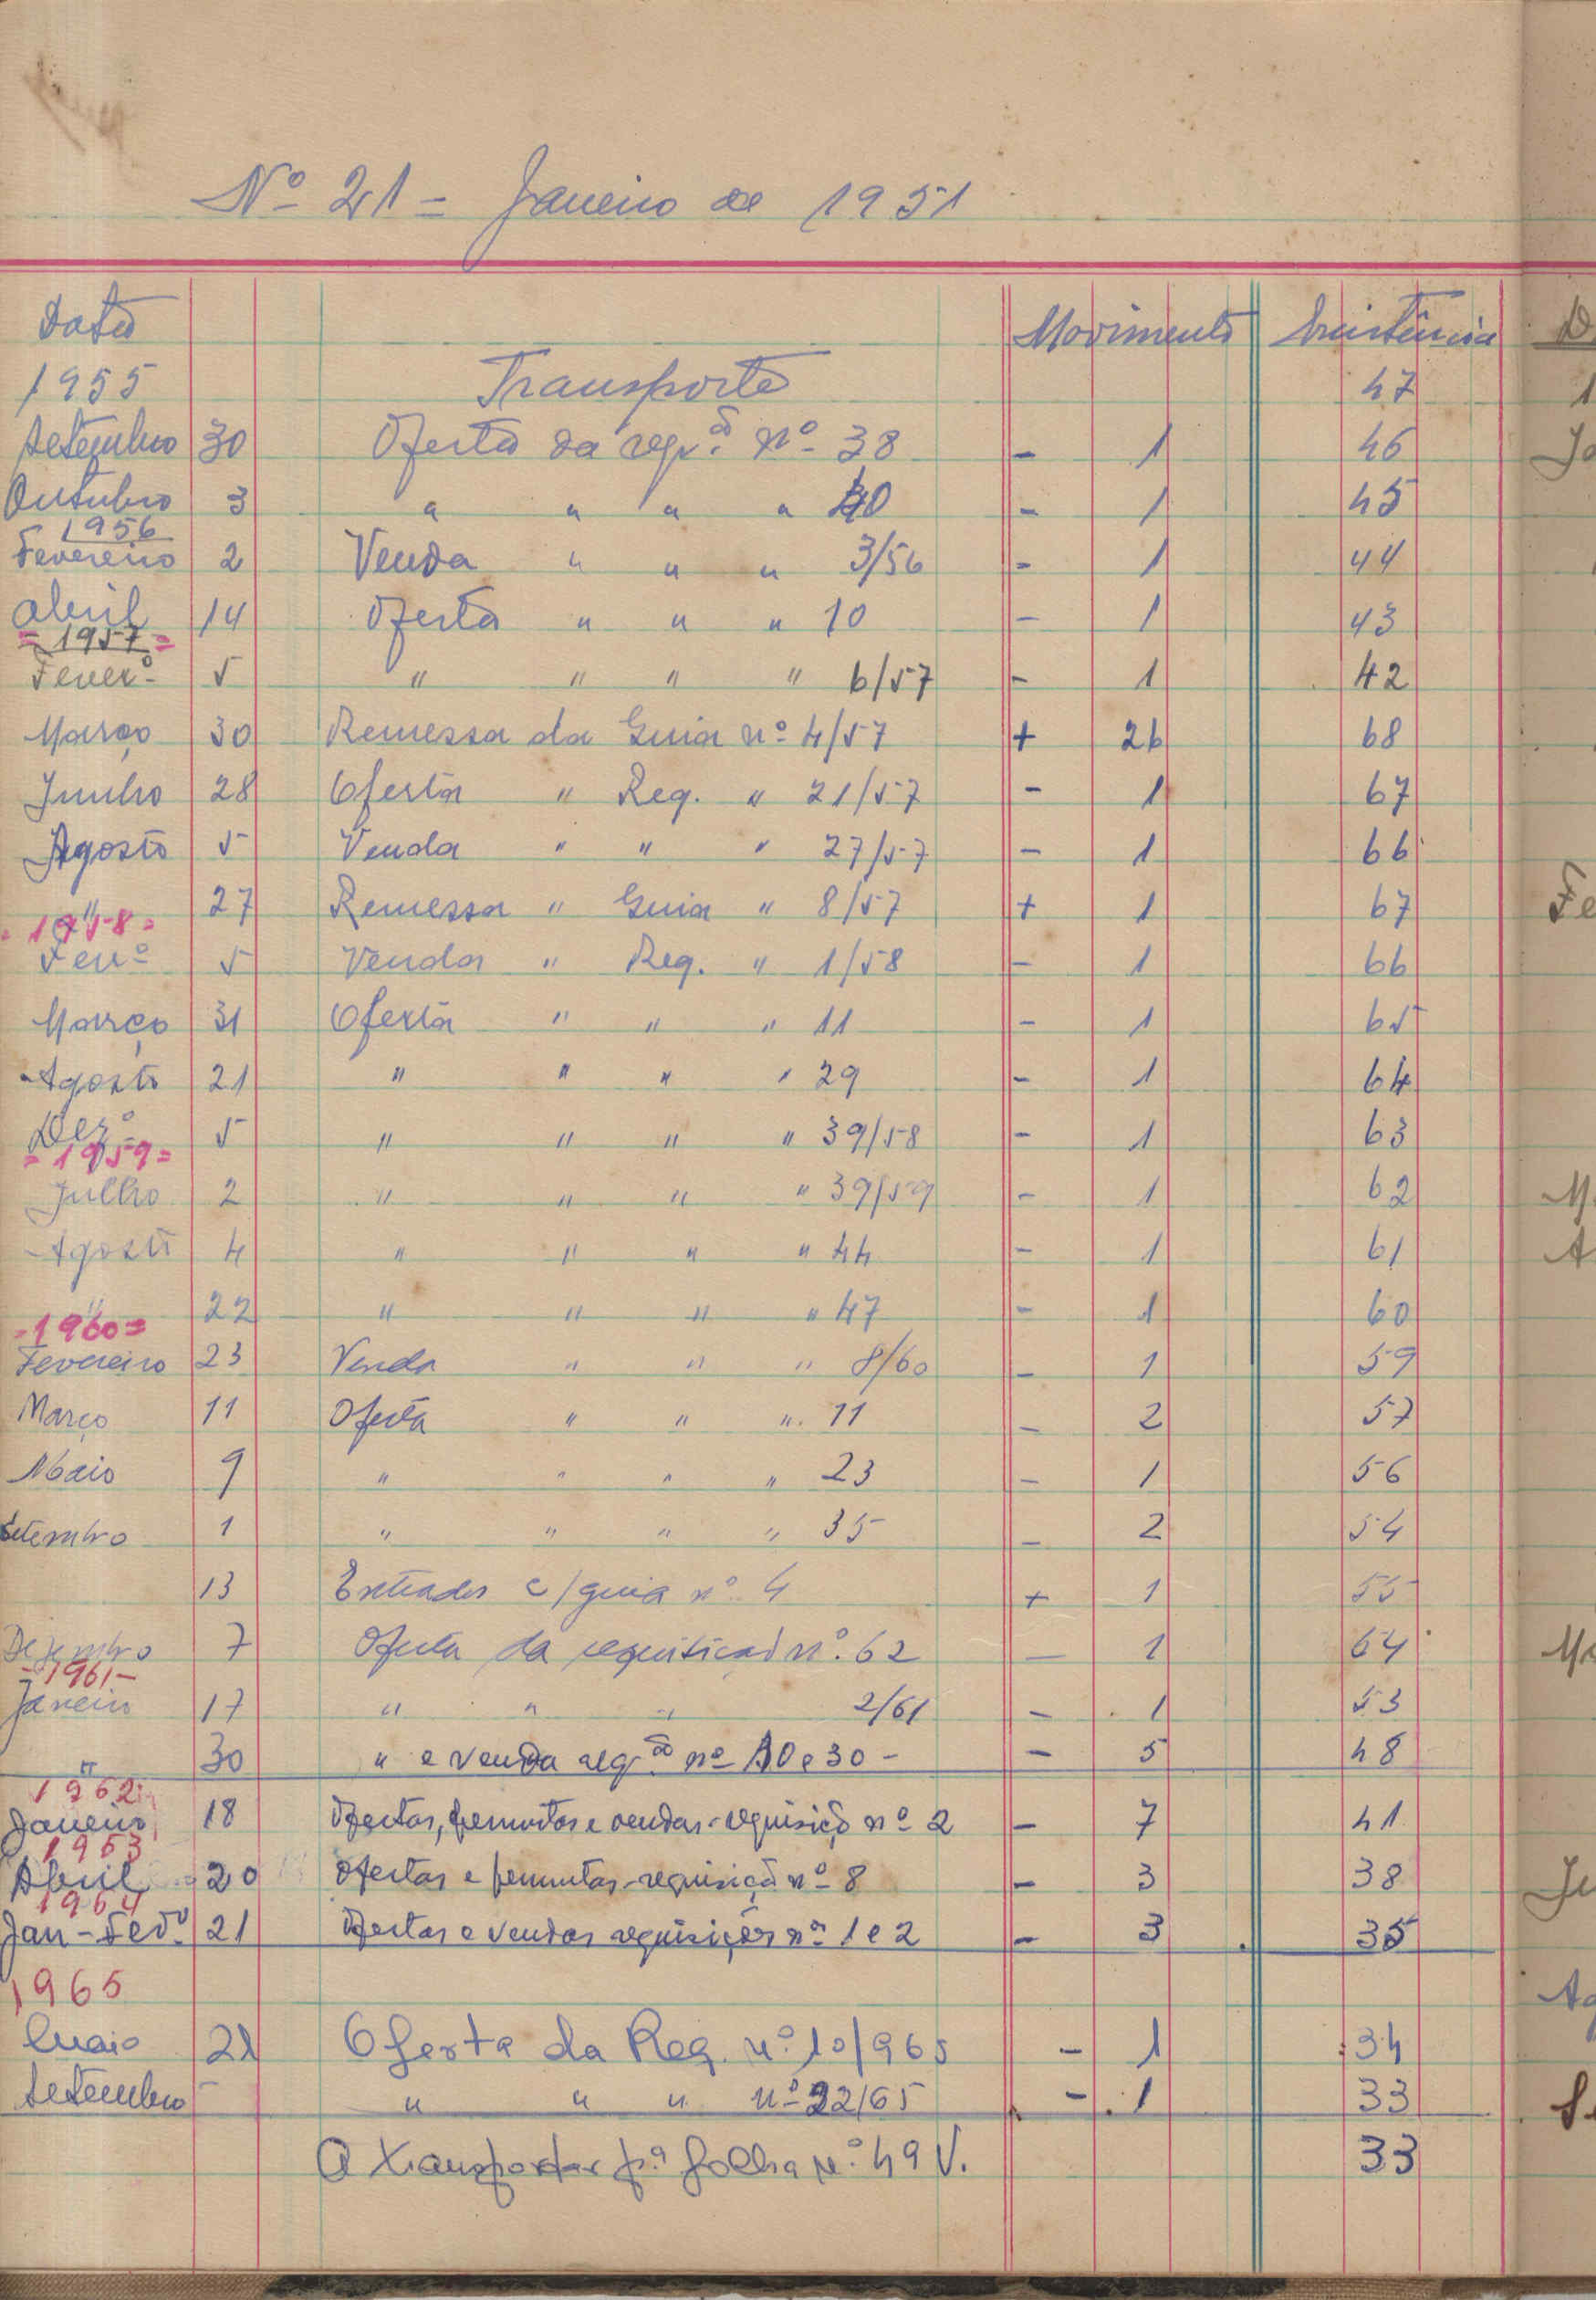 Nº 21 = Janeiro de 1951
Data Movimento Existência
1955 Transporte 47
Setembro 30 Oferta da reqão nº 38 - 1 46
Outubro 3 " " " " 40 - 1 45
1956
Fevereiro 2 Venda " " " 3/56 - 1 44
Abril 14 Oferta " " " 10 - 1 43
= 1957 =
Feverº 5 " " " " 6/57 - 1 42
Março 30 Remessa da Guia nº 4/57 + 26 68
Junho 28 Oferta " Req. " 21/57 - 1 67
Agosto 5 Venda " " " 27/57 - 1 66
" 27 Remessa " Guia " 8/57 + 1 67
= 1958 =
Fevº 5 Venda " Req. " 1/58 - 1 66
Março 31 Oferta " " " 11 - 1 65
Agosto 21 " " " " 29 - 1 64
Dezº 5 " " " " 39/58 - 1 63
= 1959 =
Julho 2 " " " " 39/59 - 1 62
Agosto 4 " " " " 44 - 1 61
" 22 " " " " 47 - 1 60
= 1960 =
Fevereiro 23 Venda " " " 8/60 - 1 59
Março 11 Oferta " " " 11 - 2 57
Maio 9 " " " " 23 - 1 56
Setembro 1 " " " " 35 - 2 54
13 Entrada c/guia nº 4 + 1 55
Dezembro 7 Oferta da requisição nº 62 - 1 54
- 1961 -
Janeiro 17 " " " 2/61 - 1 53
" 30 " e venda reqão nº 10 e 30 - - 5 48
1962
Janeiro 18 Ofertas, permutas e vendas - requisição nº 2 - 7 41
1963
Abril 20 Ofertas e permutas - requisição nº 8 - 3 38
1964
Jan - Fevº 21 Ofertas e vendas requisições nºs 1 e 2 - 3 35
1965
Maio 21 Oferta da Req. nº 10/965 - 1 34
Setembro - " " " nº 22/65 - 1 33
A transportar pª folha nº 49 V. 33